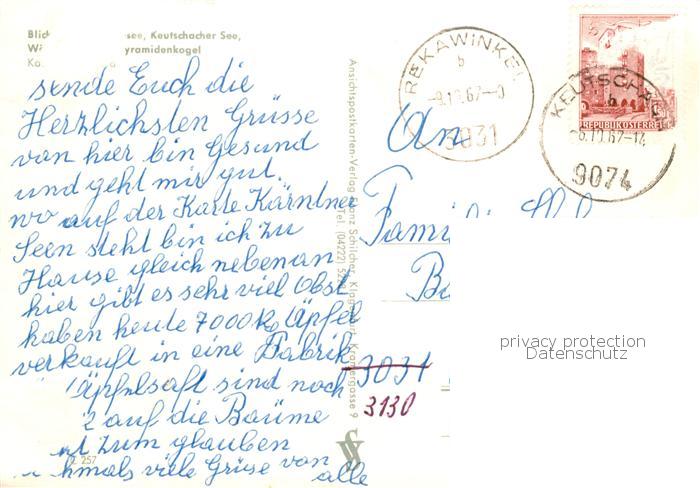 Blick see, Keutschacher See,
yramidenkogel
sende Euch die
Herzlichsten Grüsse
von hier bin Gesund
und geht mir gut.
wo auf der Karte Kärntner
Seen steht bin ich zu
Hause gleich nebenan
hier gibt es sehr viel Obst
haben heute 7000 kg Äpfel
verkauft in eine Fabrik
Äpfelsaft sind noch
2 auf die Bäume
zum glauben
hmals viele Grüse von
alle
257
Ansichtspostkarten-Verlag Franz Schilcher, Klagenfurt, Kranergasse 9
Tel. (04222)
REKAWINKEL
b
-9.10.67-0
3031
KEUTSCHACH
b
-6.10.67-14
9074
REPUBLIK ÖSTERREICH
An
Fami
3031
3130
privacy protection
Datenschutz